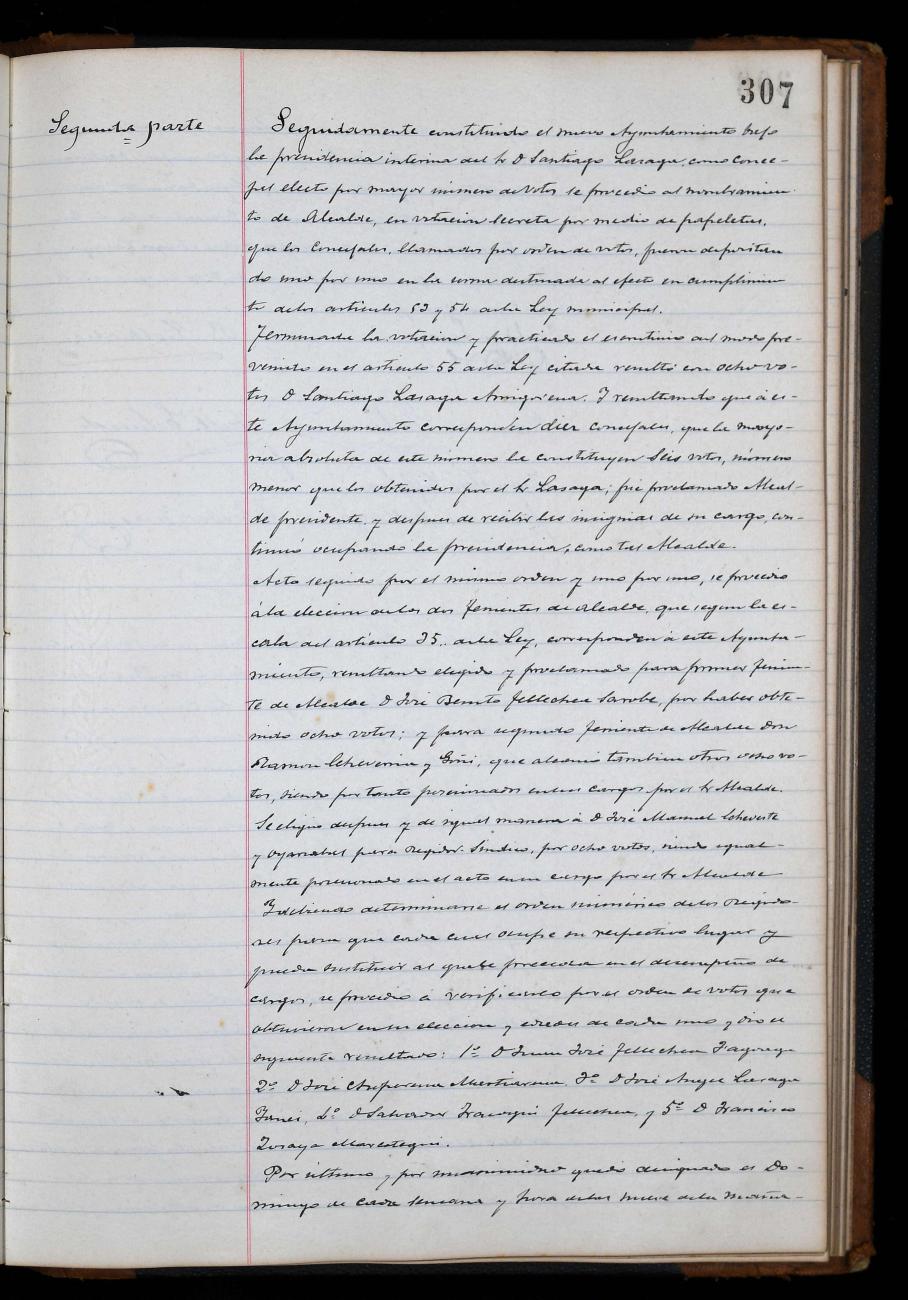 307
Segunda parte
Seguidamente constituido el nuevo Ayuntamiento bajo
la presidencia interina del Sr D Santiago Lasaga, como conce-
jal electo por mayor número de votos se procedio al nombramien-
to de Alcalde, en votacion secreta por medio de papeletas,
que los Concejales, llamados por orden de votos, fueron depositan-
do uno por uno en la urna destinada al efecto en cumplimien-
to delos artículos 53 y 54 dela Ley municipal.
Terminada la votacion y practicado el escrutinio del modo pre-
venido en el artículo 55 dela Ley citada resultó con ocho vo-
tos D Santiago Lasaga Amigorena. Y resultando que á es-
te Ayuntamiento corresponden diez concejales, que la mayo-
ria absoluta de este número la constituyen Seis votos, número
menor que los obtenidos por el Sr Lasaga; fué proclamado Alcal-
de presidente, y despues de recibir las insignias de su cargo, con-
tinuó ocupando la presidencia, como tal Alcalde.
Acto seguido por el mismo orden y uno por uno, se procedio
á la eleccion delos dos Tenientes de alcalde, que segun la es-
cala del artículo 35.. dela Ley, corresponden á este Ayunta-
miento, resultando elegido y proclamado para primer Tenien-
te de Alcalde D José Benito Tellechea Sarobe, por haber obte-
nido ocho votos; y para segundo Teniente de Alcalde Don
Ramon Echeverria y Goñi, que alcanzó tambien otros ocho vo-
tos, siendo por tanto posesionados en sus cargos por el Sr Alcalde.
Se eligio despues y de igual manera á D José Manuel Echeveste
y Oyarzabal para Regidor Síndico, por ocho votos, siendo igual-
mente posesionado en el acto en su cargo por el Sr Alcalde
Y debiendo determinarse el orden numérico delos Regido-
res para que cada cual ocupe su respectivo lugar y
pueda sustituir al que le preceda en el desempeño de
cargos, se procedio á verificarlo por el orden de votos que
obtuvieron en su eleccion y edades de cada uno y dio el
siguiente resultado: 1º D Juan José Tellechea
2º D José 3º D José Angel Lasaga
4º D Salvador Tellechea, y 5º D Francisco

Por último y por unanimidad quedó designado el Do-
mingo de cada semana y hora delas nueve dela maña-